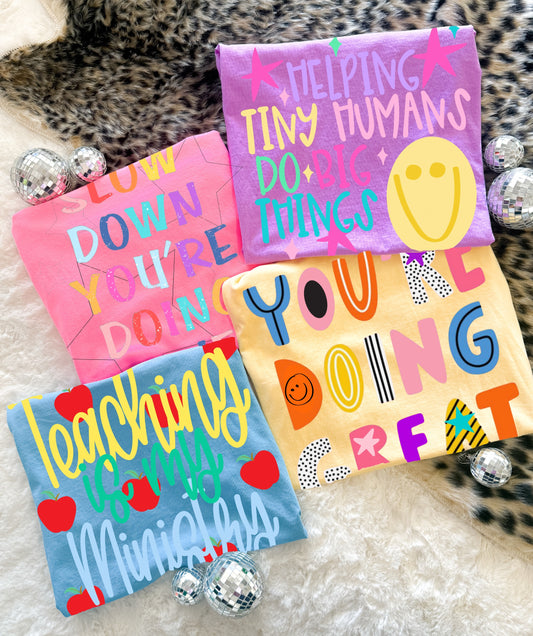 HELPING
TINY HUMANS
DO BIG
THINGS
SLOW
DOWN
YOU'RE
DOING
YOU'RE
DOING
GREAT
Teaching
is my
Ministry